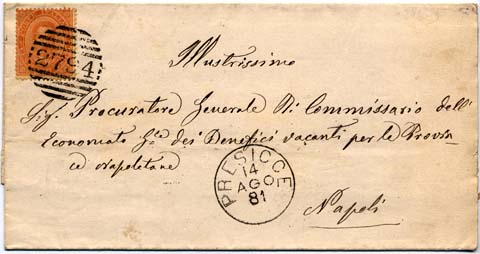 2784
Illustrissimo
Sig. Procuratore Generale Di Commissario dell'
Economato Gle dei Benefici vacanti per le Provin
ce Napoletane
PRESICCE
14
AGO
81
Napoli